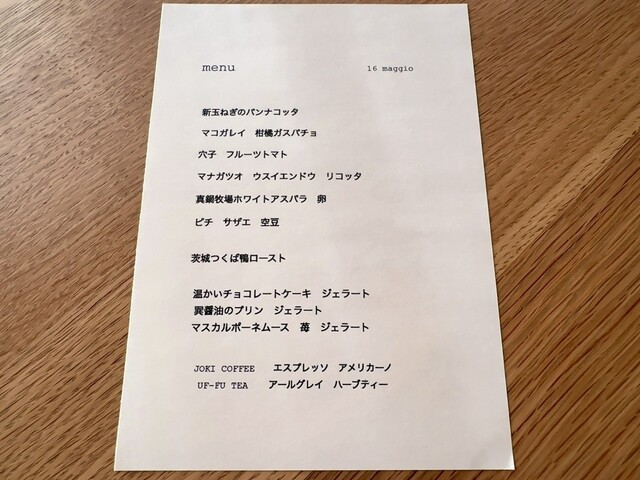 menu 16 maggio
新玉ねぎのパンナコッタ
マコガレイ 柑橘ガスパチョ
穴子 フルーツトマト
マナガツオ ウスイエンドウ リコッタ
真鍋牧場ホワイトアスパラ 卵
ピチ サザエ 空豆
茨城つくば鴨ロースト
温かいチョコレートケーキ ジェラート
巽醤油のプリン ジェラート
マスカルポーネムース 苺 ジェラート
JOKI COFFEE エスプレッソ アメリカーノ
UF-FU TEA アールグレイ ハーブティー